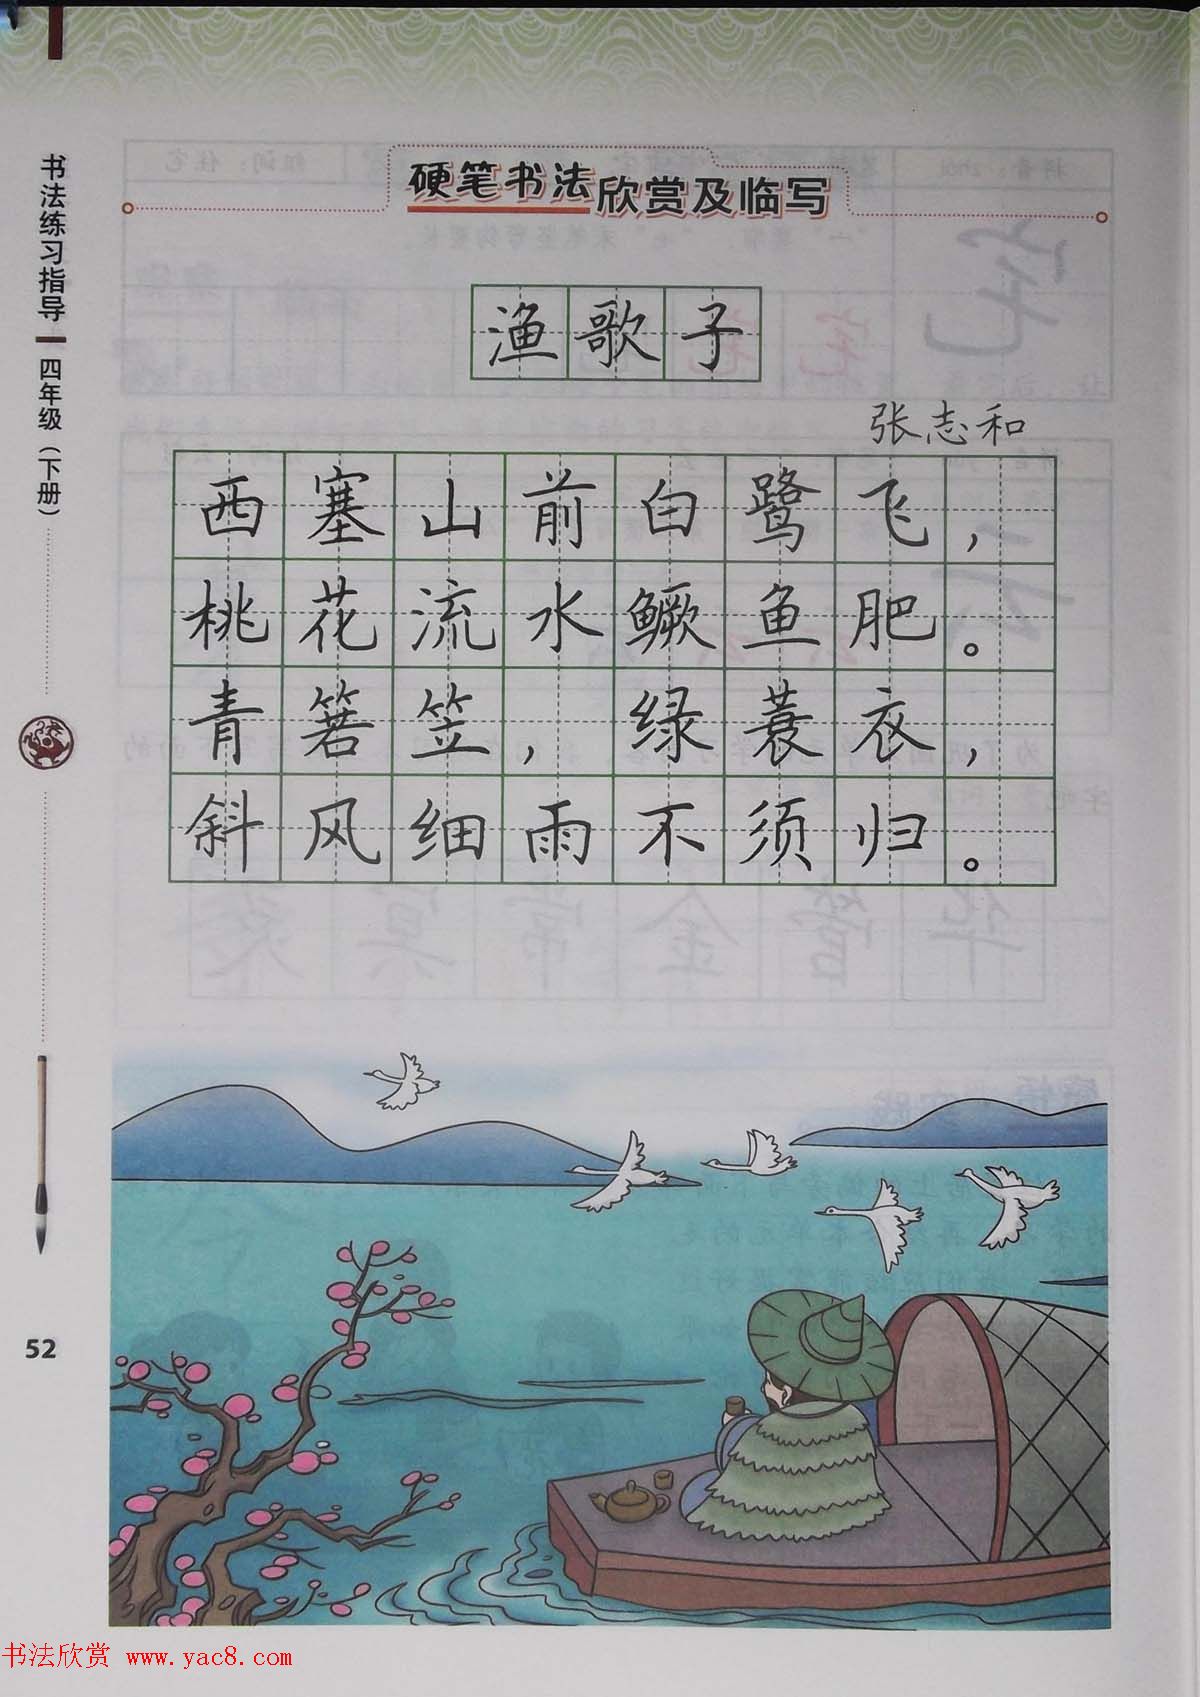 硬笔书法欣赏及临写
渔歌子
张志和
西塞山前白鹭飞，
桃花流水鳜鱼肥。
青箬笠，绿蓑衣，
斜风细雨不须归。
书法练习指导 四年级（下册）
52
书法欣赏 www.yac8.com